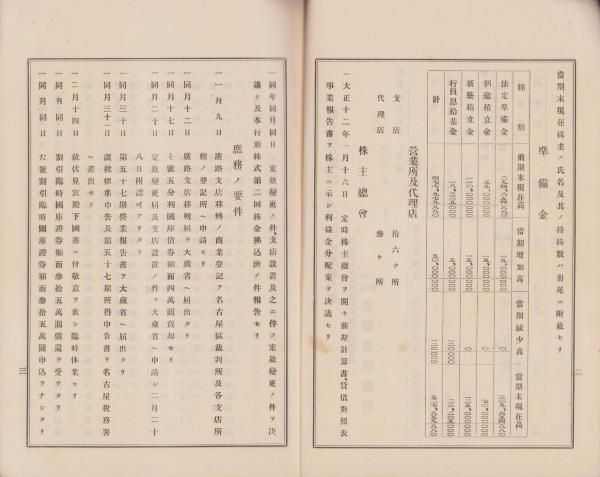 當期末現在株主ノ氏名及其ノ持株數ハ册尾ニ附載セリ
準備金
種類
前期末現在高
當期增加高
當期減少高
當期末現在高
法定準備金
別途積立金
新築積立金
行員恩給基金
計
營業所及代理店
支店 拾六ヶ所
代理店 參ヶ所
株主總會
一大正十二年一月十六日 定時株主總會ヲ開キ前期計算書、貸借對照表
事業報告書ヲ株主ニ示シ利益金分配案ヲ決議セリ
二
一同年同月同日 定款變更ノ件、支店設置及之ニ伴フ定款變更ノ件ヲ決
議シ及本行新株式第二回株金拂込濟ノ件報告セリ
庶務ノ要件
一一月九日 廣路支店移轉ノ商業登記ヲ名古屋區裁判所及各支店所
轄ノ登記所ヘ申請セリ
一同月十二日 廣路支店移轉屆ヲ大藏省ヘ屆出セリ
一同月十七日 そ號五分利國庫債券額面四萬圓賣却セリ
一同月二十日 定款變更屆及支店設置ノ件ヲ大藏省ヘ申請シ二月二十
八日附認可アリタリ
一同月三十日 第五十七期營業報告書ヲ大藏省ヘ屆出タリ
一同月三十一日 課稅標準申告及第五十七期所得申告書ヲ名古屋稅務署
ヘ差出セリ
一二月十四日 故伏見宮殿下國葬ニ付敬意ヲ表シ臨時休業セリ
一同月同日 割引臨時國庫證券額面參拾五萬圓償還ヲ受ケタリ
一同月同日 た號割引臨時國庫證券額面參拾五萬圓申込ヲナシタリ
三